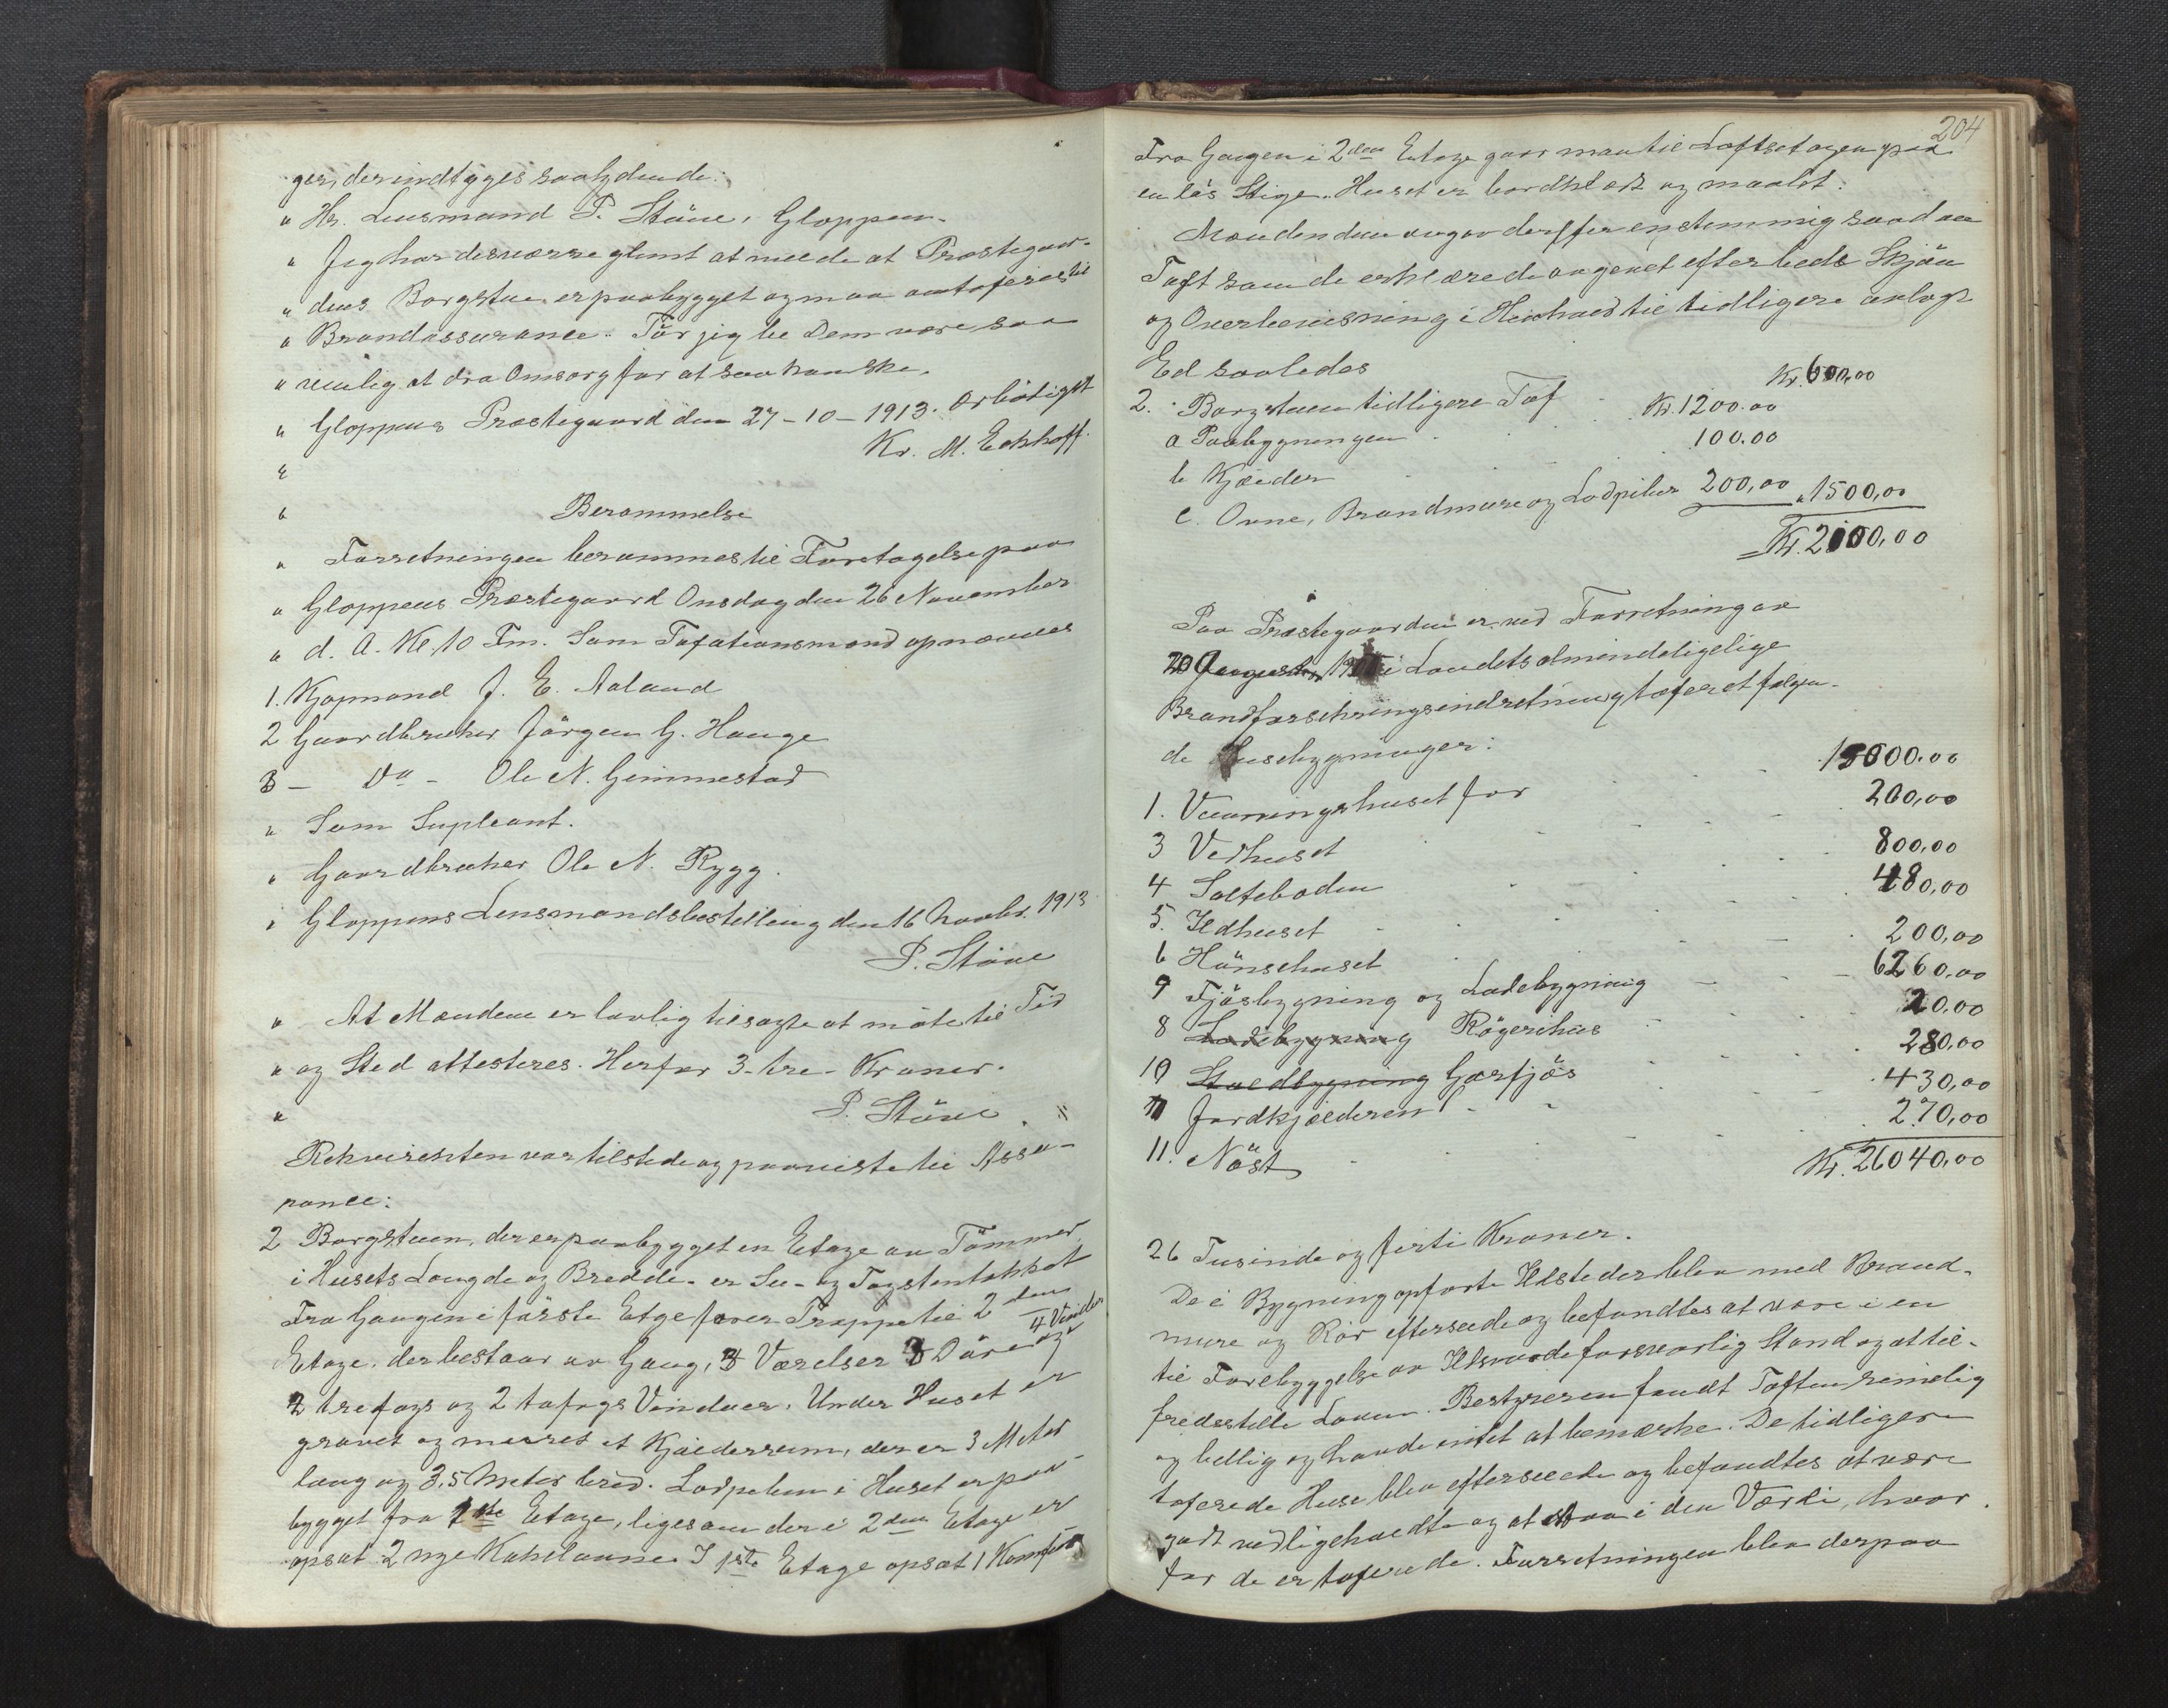 ger, der indtages saalydende:
" Hr. Lensmand P. Støve, Gloppen.
" Jeg har desværre glemt at melde at Præstegaar-
" dens Borgstue er paabygget og maa omtaxeres til
" Brandassurance. Tør jeg be Dem være saa
" venlig at dra Omsorg for at saa kan ske.
" Gloppens Præstegaard den 27-10-1913. Ærbødigst
" Kr. M. Eckhoff.
" Berammelse
" Forretningen berammes til Foretagelse paa
" Gloppens Præstegaard Onsdag den 26 November
" d. A. Kl. 10 Fm. Som Taxationsmænd opnævnes
1. Kjøpmand J. E. Aaland
2 Gaardbruker Jörgen G. Hauge
3 - Do - Ole N. Gimmestad
" Som Supleant.
" Gaardbruker Ole N. Rygg.
" Gloppens Lensmandsbestilling den 16 Novbr. 1913
P. Støve
" At Mændene er lovlig tilsagte at møte til Tid
" og Sted attesteres. Herfor 3 - tre - Kroner.
" P. Støve
Rekvirenten var tilstede og paaviste til Assu-
rance:
2 Borgstuen, der er paabygget en Etage av Tömmer
i Husets Længde og Bredde - er Su- og Tagstentækket
Fra Gangen i første Etge fører Trappe til 2den
Etage, der bestaar av Gang, 3 Værelser 8 Döre og 4 Vinduer
2 trefags og 2 tofags Vinduer. Under Huset er
gravet og muret et Kjælderrum, der er 3 Meter
lang og 3,5 Meter bred. Lodpiben i Huset er paa-
bygget fra 1ste Etage, ligesom der i 2den Etage er
opsat 2 nye Kakelovne. I 1ste Etage opsat 1 Komfür
204
Fra Gangen i 2den Etage gaar man til Loftsetagen paa
en løs Stige. Huset er bordklædt og maalt.
Mændene avgav derefter enstemmig saadan
Taxt som de erklærede avgivet efter beds Skjøn
og Overbevisning i Henhold til tidligere avlagt
Ed saaledes
2. Borgstuen tidligere Tax Kr. 600,00
a Paabygningen Kr. 1200.00
b Kjælder 100.00
c. Ovne, Brandmure og Lodpiber 200,00 " 1500,00
Kr. 2100,00
Paa Præstegaarden er ved Forretning av
20 August i Landets almindeligelige
Brandforsikringsindretning taxeret følgen-
de Husebygninger:
1. Vaaningshuset for 15000.00
3 Vedhuset 200,00
4 Salteboden 800,00
5. Ildhuset 480,00
6 Hönsehuset 200,00
7 Fjøsbygning og Ladebygning 6260,00
8 Ladebygning Røgerihus 20,00
10 Staldbygning Garfjøs 280,00
11 Jordkjælderen 430,00
11. Nøst 270,00
Kr. 26040,00
26 Tusinde og førti Kroner.
De i Bygning opførte Ildsteder blev med Brand-
mure og Rör efterseede og befandtes at være i en
til Forebyggelse av Ildsvaade forsvarlig Stand og at til-
fredsstille Loven. Bestyreren fandt Taxten rimelig
og billig og havde intet at bemærke. De tidligere
taxerede Huse blev efterseede og befandtes at være
godt vedligeholdte og at staa i den Værdi, hvor-
for de er taxerede. Forretningen blev derpaa